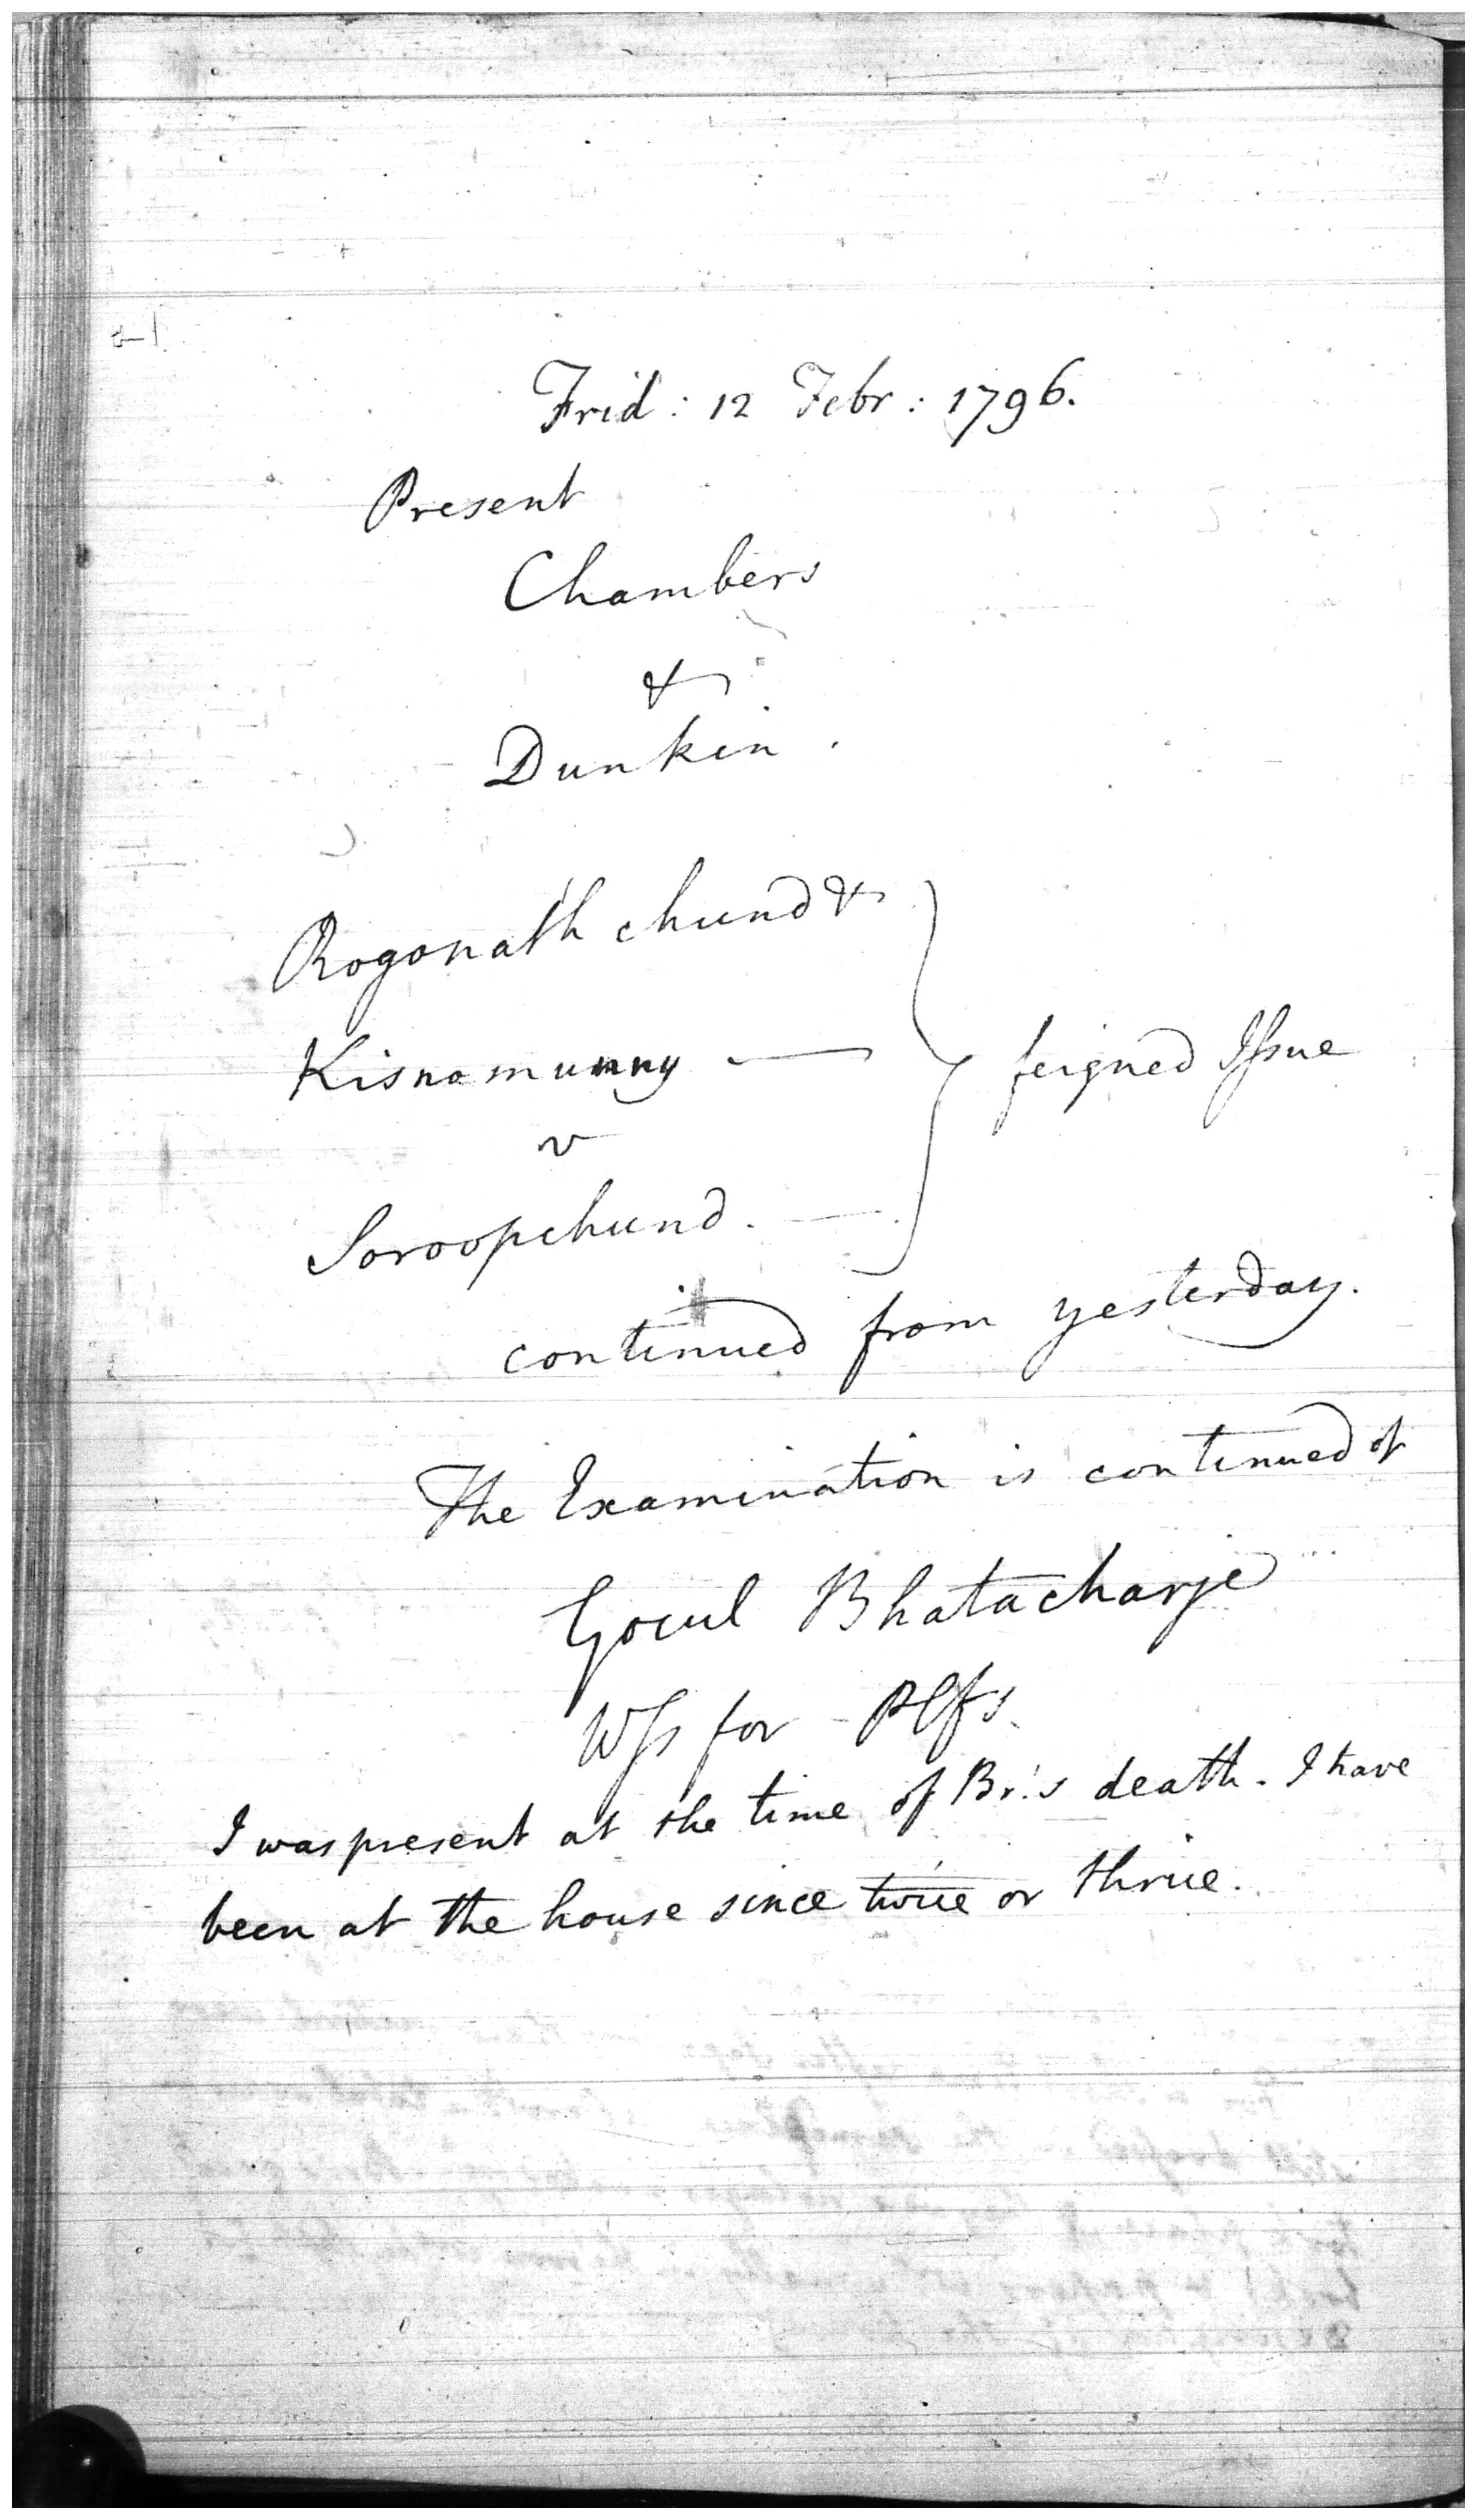 Frid: 12 Febr: 1796.
Present
Chambers
&
Dunkin.
Rogonath chund &
Kisnamunny —
v
Soroopchund. —
feigned Issue
continued from yesterday.
The Examination is continued of
Gocul Bhatacharje
Wss for Plffs
I was present at the time of Br:'s death. I have
been at the house since twice or thrice.